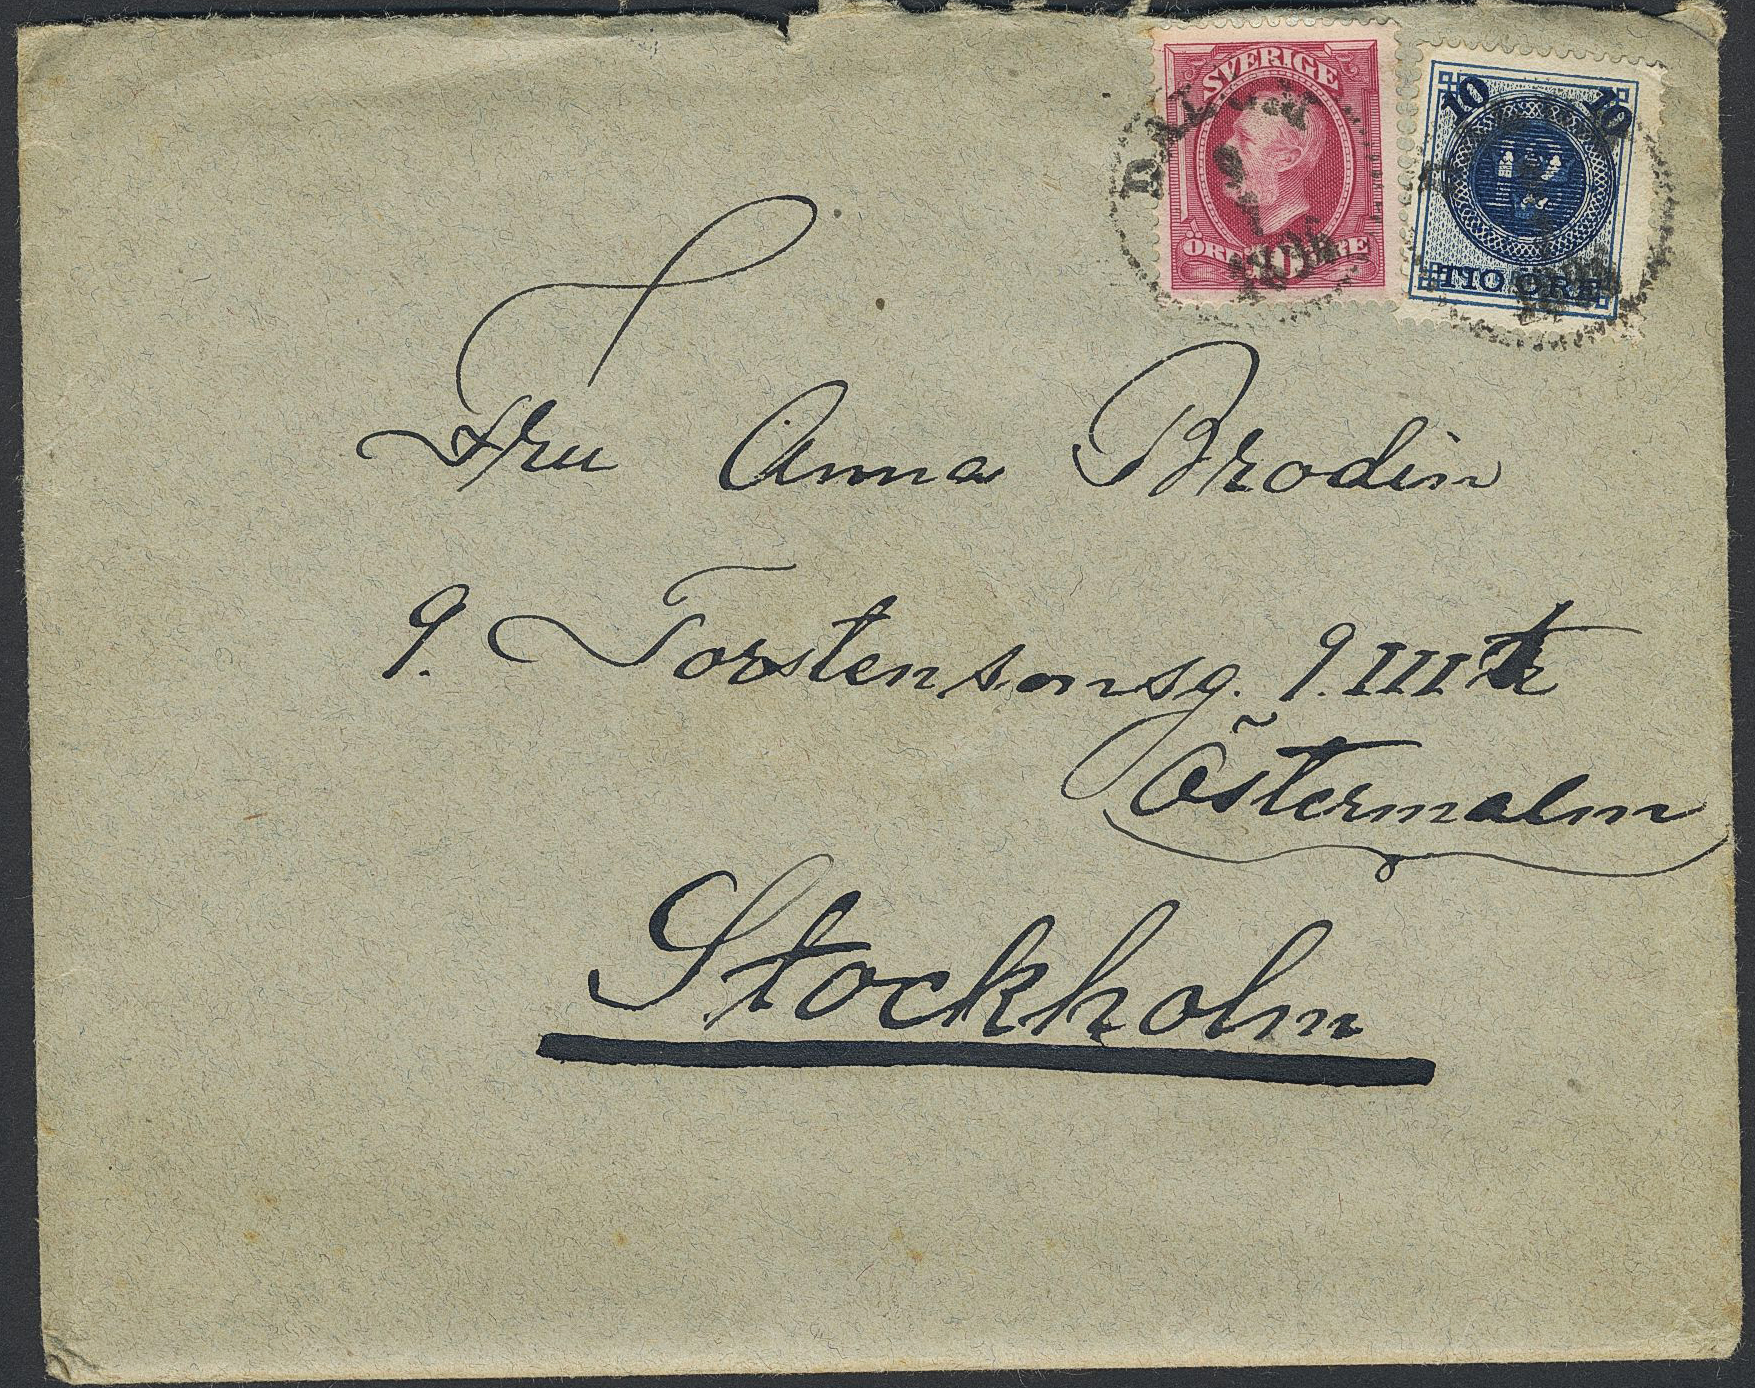 SVERIGE
10 10
TIO ÖRE
Fru Anna Brodin
9. Torstensonsg. 9. III
Östermalm
Stockholm